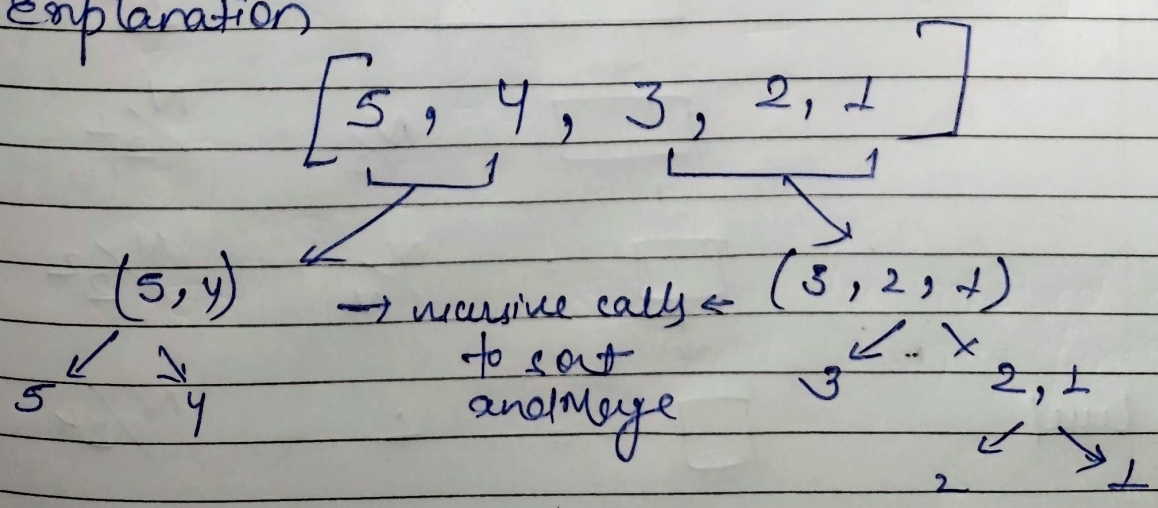 explanation
[5, 4, 3, 2, 1]
(5, 4) → recursive calls ← (3, 2, 1)
to sort
5 4 and Merge 3 2, 1
2 1